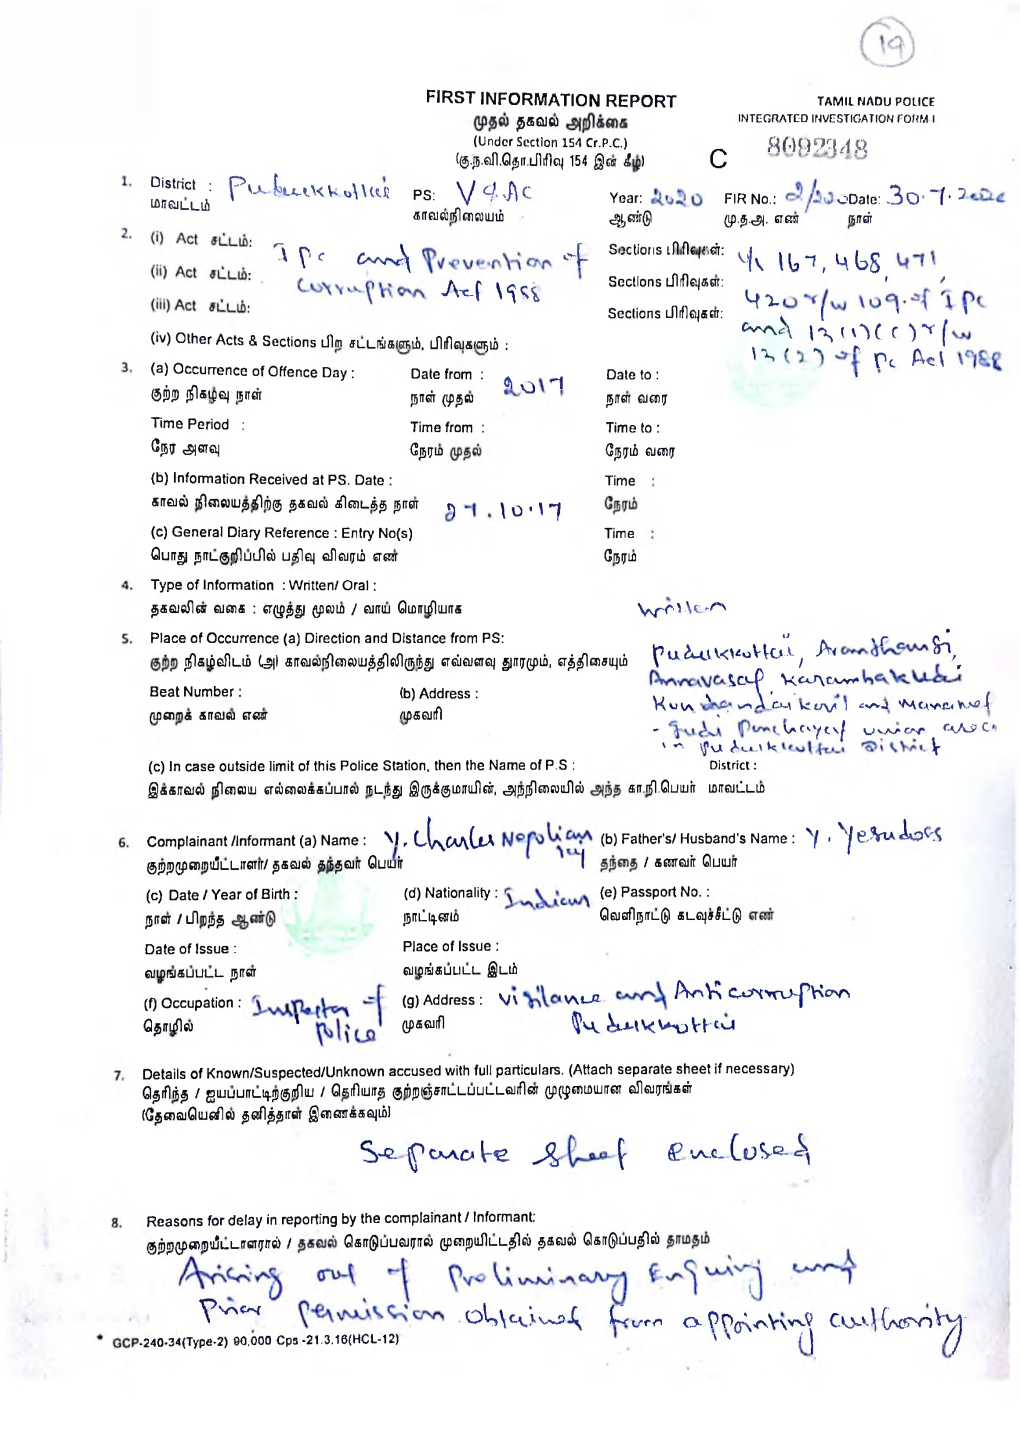 19
FIRST INFORMATION REPORT
TAMIL NADU POLICE
முதல் தகவல் அறிக்கை
INTEGRATED INVESTIGATION FORM I
(Under Section 154 Cr.P.C.)
(கு.ந.வி.தொ.பிரிவு 154 இன் கீழ்)
C 8092348
1. District : Pudukkottai PS: V&AC Year: 2020 FIR No.: 2/2020 Date: 30.7.2020
மாவட்டம் காவல்நிலையம் ஆண்டு மு.த.அ. எண் நாள்
2. (i) Act சட்டம்: IPC and Prevention of Sections பிரிவுகள்: U/s 167, 468, 471,
(ii) Act சட்டம்: Corruption Act 1988 Sections பிரிவுகள்: 420 r/w 109 of IPC
(iii) Act சட்டம்: Sections பிரிவுகள்: and 13(1)(c) r/w
(iv) Other Acts & Sections பிற சட்டங்களும், பிரிவுகளும் : 13(2) of PC Act 1988
3. (a) Occurrence of Offence Day : Date from : 2017 Date to :
குற்ற நிகழ்வு நாள் நாள் முதல் நாள் வரை
Time Period : Time from : Time to :
நேர அளவு நேரம் முதல் நேரம் வரை
(b) Information Received at PS. Date : Time :
காவல் நிலையத்திற்கு தகவல் கிடைத்த நாள் 27.10.17 நேரம்
(c) General Diary Reference : Entry No(s) Time :
பொது நாட்குறிப்பில் பதிவு விவரம் எண் நேரம்
4. Type of Information : Written/ Oral :
தகவலின் வகை : எழுத்து மூலம் / வாய் மொழியாக written
5. Place of Occurrence (a) Direction and Distance from PS:
குற்ற நிகழ்விடம் (அ) காவல்நிலையத்திலிருந்து எவ்வளவு தூரமும், எத்திசையும் Pudukkottai, Aranthangi,
Beat Number : (b) Address : Annavasal, Karambakkudi
முறைக் காவல் எண் முகவரி Kunnandarkovil and Manamel
-gudi Panchayat union area
in Pudukkottai District
(c) In case outside limit of this Police Station, then the Name of P.S : District :
இக்காவல் நிலைய எல்லைக்கப்பால் நடந்து இருக்குமாயின், அந்நிலையில் அந்த கா.நி.பெயர் மாவட்டம்
6. Complainant /Informant (a) Name : Y. Charles Nepolian (b) Father's/ Husband's Name : Y. Yesudoss
குற்றமுறையீட்டாளர்/ தகவல் தந்தவர் பெயர் தந்தை / கணவர் பெயர்
(c) Date / Year of Birth : (d) Nationality : Indian (e) Passport No. :
நாள் / பிறந்த ஆண்டு நாட்டினம் வெளிநாட்டு கடவுச்சீட்டு எண்
Date of Issue : Place of Issue :
வழங்கப்பட்ட நாள் வழங்கப்பட்ட இடம்
(f) Occupation : Inspector of (g) Address : Vigilance and Anticorruption
தொழில் Police முகவரி Pudukkottai
7. Details of Known/Suspected/Unknown accused with full particulars. (Attach separate sheet if necessary)
தெரிந்த / ஐயப்பாட்டிற்குறிய / தெரியாத குற்றஞ்சாட்டப்பட்டவரின் முழுமையான விவரங்கள்
(தேவையெனில் தனித்தாள் இணைக்கவும்)
Separate sheet enclosed
8. Reasons for delay in reporting by the complainant / Informant:
குற்றமுறையீட்டாளரால் / தகவல் கொடுப்பவரால் முறையிட்டதில் தகவல் கொடுப்பதில் தாமதம்
Arising out of Preliminary Enquiry and
Prior permission obtained from appointing authority
* GCP-240-34(Type-2) 90,000 Cps -21.3.16(HCL-12)